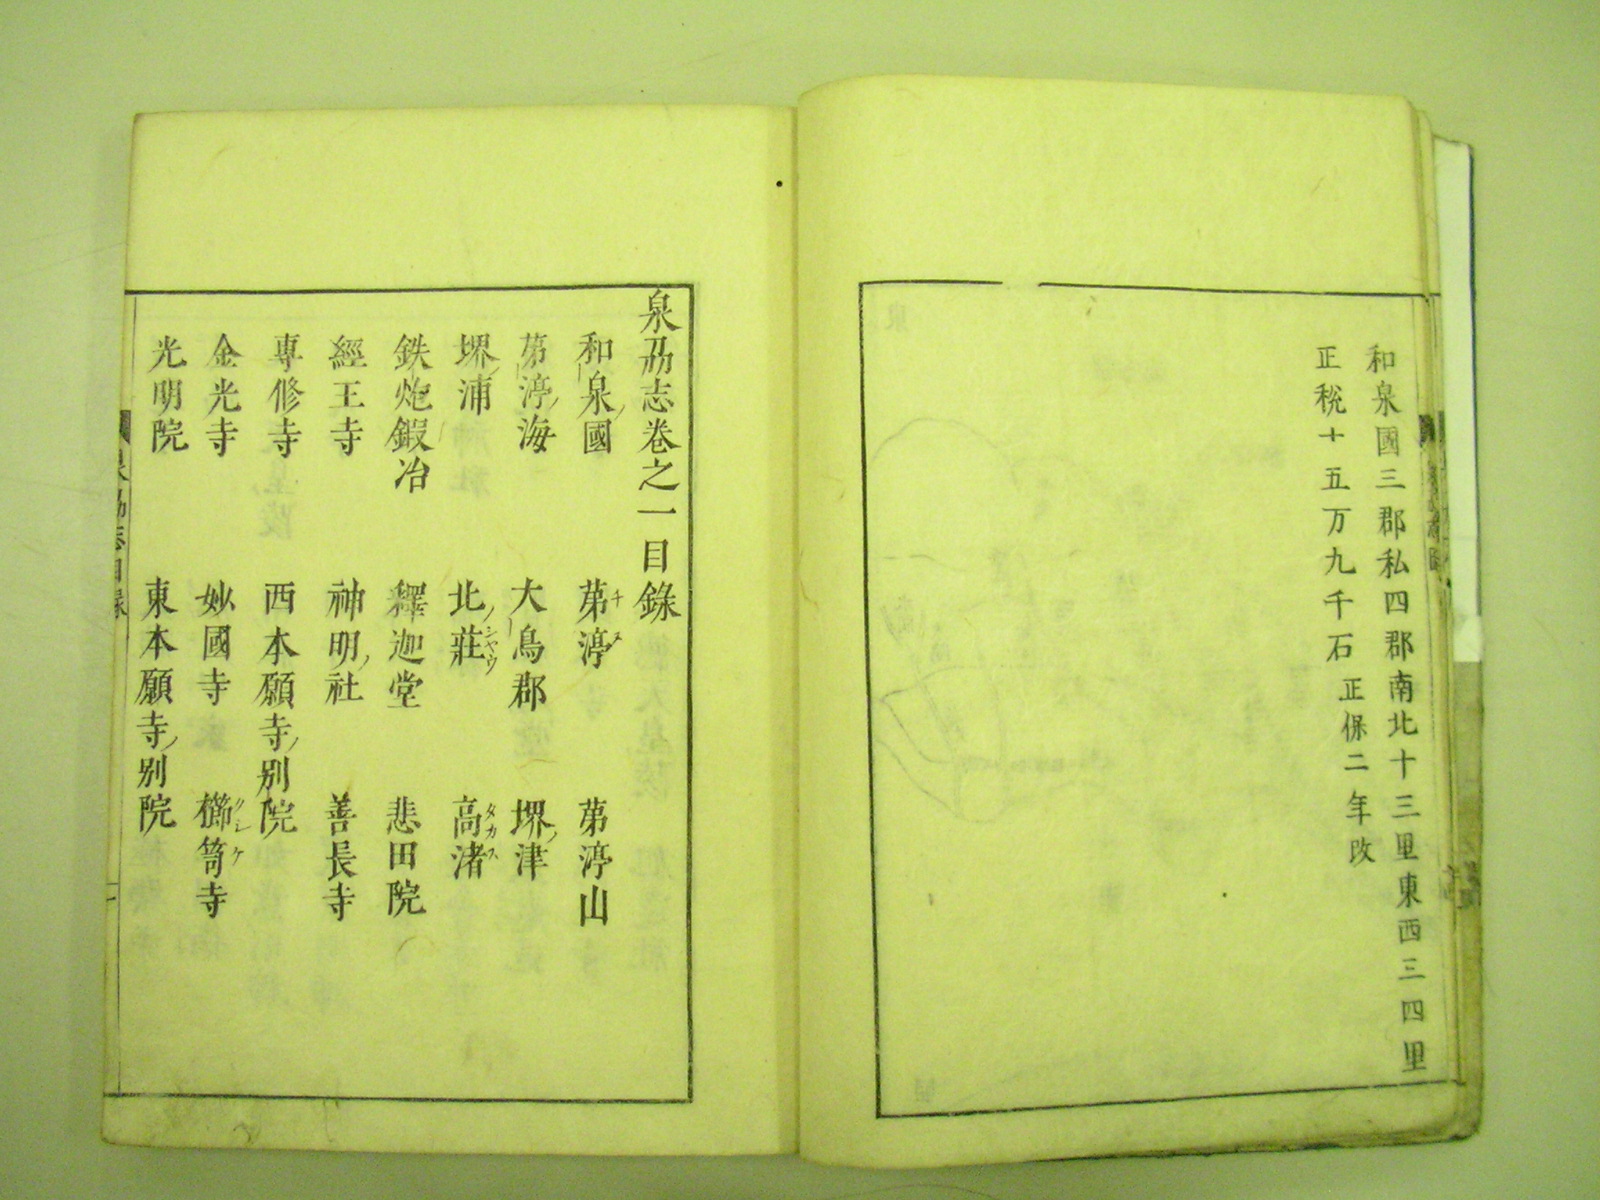 和泉國三郡私四郡南北十三里東西三四里
正税十五万九千石正保二年改
泉刕志卷之一目錄
和泉ノ國 茅渟チヌ 茅渟山
茅渟ノ海 大鳥郡 堺ノ津
堺ノ浦 北ノ莊シヤウ 高渚タカス
鉄炮鍜冶 釋迦堂 悲田院
經王寺 神明ノ社 善長寺
專修寺 西本願寺ノ別院
金光寺 妙國寺 櫛笥クシケ寺
光明院 東本願寺ノ別院